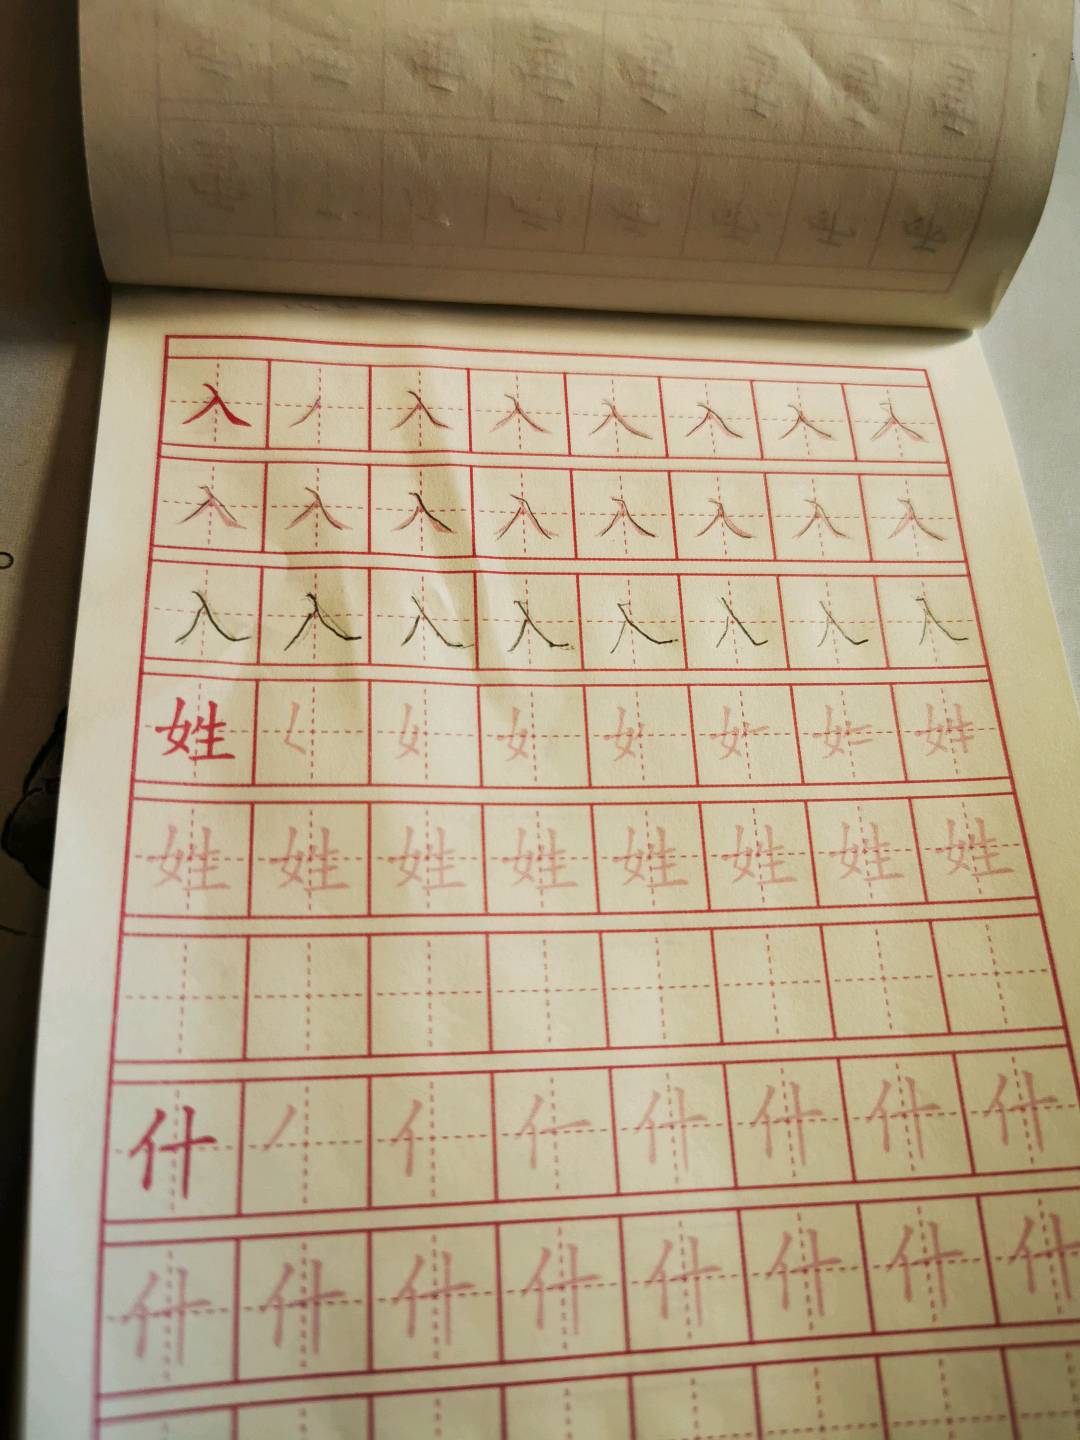 入 丿 入 入 入 入 入 入
入 入 入 入 入 入 入 入
入 入 入 入 入 入 入 入
姓 女 女 女
姓 姓 姓 姓 姓 姓 姓 姓
什 丿 亻 什 什 什 什
什 什 什 什 什 什 什 什